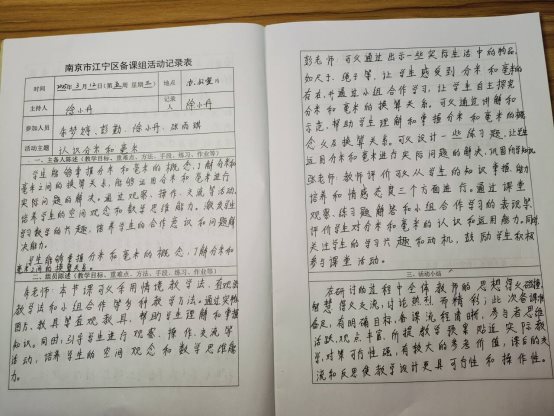 南京市江宁区备课组活动记录表
时间 3月12日(第五周 星期三) 地点
主持人 徐小丹 记录人 徐小丹
参加人员 李梦婷、彭勤、徐小丹、张雨琪
活动主题 认识分米和毫米
一、主备人陈述(教学目标、重难点、方法、手段、练习、作业等)
学生能够掌握分米和毫米的概念,了解分米和
毫米之间的换算关系,能够运用分米和毫米进行
实际问题的解决。通过观察、操作、交流等活动,
培养学生的空间观念和数学思维能力。激发学生
学习数学的兴趣,培养学生的合作意识和问题解
决能力。
学生能够掌握分米和毫米的概念,了解分米和
毫米之间的换算关系。
二、组员陈述(教学目标、重难点、方法、手段、练习、作业等)
李老师:本节课可以采用情境教学法、直观
教学法和小组合作等多种教学方法。通过实物、
图片、教具等直观教具,帮助学生理解和掌握
知识。同时,引导学生进行观察、操作、交流等
活动,培养学生的空间观念和数学思维能
力。
彭老师:可以通过出示一些实际生活中的物品,
如尺子、绳子等,让学生感受到分米和毫米的
存在,并通过小组合作学习,让学生自主探究
分米和毫米的换算关系。可以通过讲解和
示范,帮助学生理解和掌握分米和毫米的概
念以及换算关系。可以设计一些练习题,让学生
运用分米和毫米进行实际问题的解决,巩固所学知识。
张老师:教师评价可以从学生的知识掌握、能力
培养和情感态度三个方面进行。通过课堂
观察、练习题解答和小组合作学习的表现来
评价学生对分米和毫米的认识和运用能力。同时
关注学生的学习兴趣和动机,鼓励学生积极
参与课堂活动。
三、活动小结
在研讨的过程中全体教师的思想得以碰撞,
智慧得以交流,讨论热烈而精彩;此次备课准
备足,有明确目标,备课流程清晰,参与者思维
活跃,观点丰富,所提教学换算贴近实际教
学,对策可行性强,有较大的参考价值,课后的交
流和反思使教学设计更具可行性和操作性。